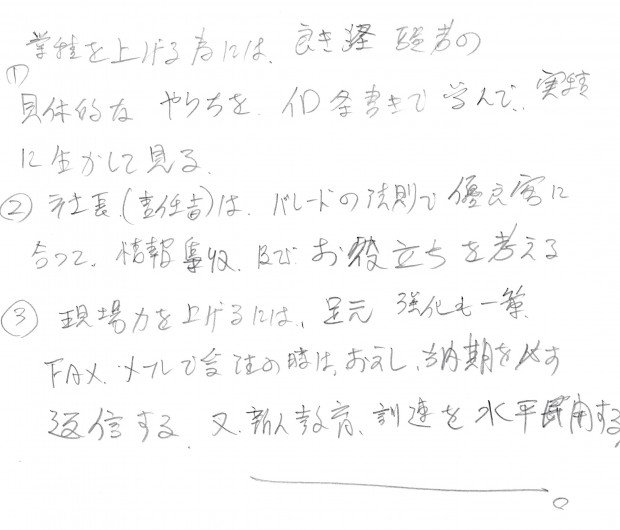 ① 業種を上げる為には、良き経験者の
具体的な やり方を、個条書きで学んで、実績
に生かして見る。
② 社長(責任者)は、パレードの法則で優良客に
合って、情報集収、及びお役立ちを考える
③ 現場力を上げるには、足元 強化も一策
FAX、メールで受注の時は、お礼し、納期を必ず
返信する。又、新人教育、訓連を水平展用する。